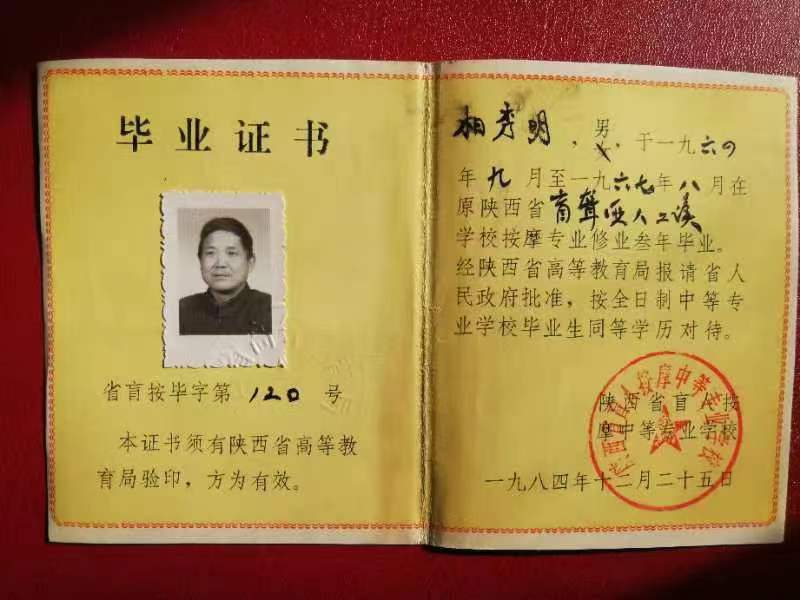 毕业证书
省盲按毕字第 120 号
本证书须有陕西省高等教
育局验印，方为有效。
相秀明，男，于一九六四
年九月至一九六七年八月在
原陕西省盲聋哑人工读
学校按摩专业修业叁年毕业。
经陕西省高等教育局报请省人
民政府批准，按全日制中等专
业学校毕业生同等学历对待。
陕西省盲人按
摩中等专业学校
一九八四年十二月二十五日
陕西省盲人按摩中等专业学校